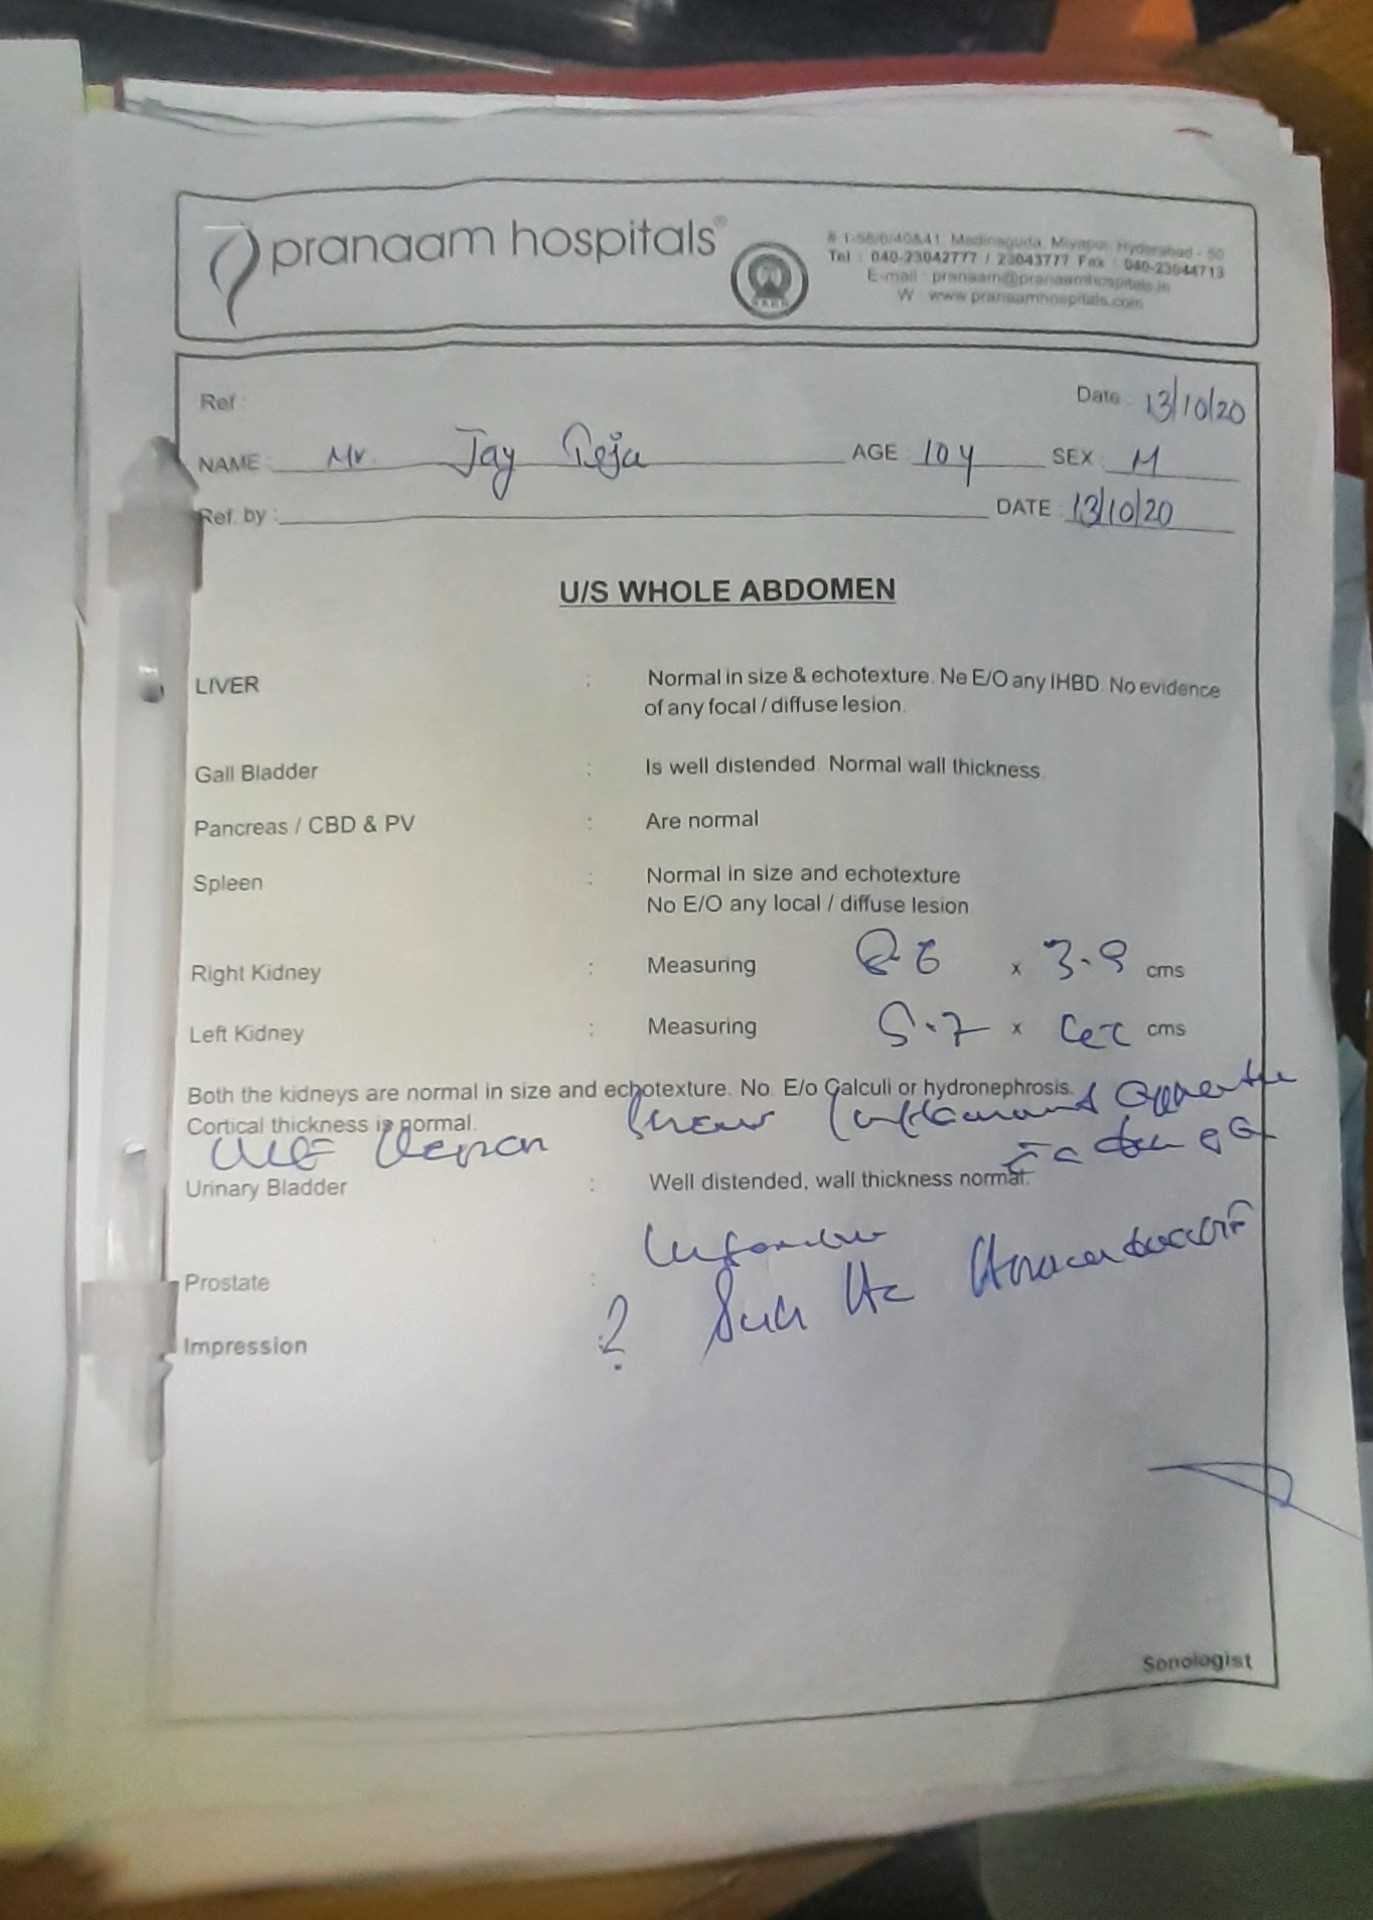 pranaam hospitals®
# 1-58/6/40&41, Madinaguda, Miyapur, Hyderabad - 50
Tel : 040-23042777 / 23043777 Fax : 040-23044713
E-mail : pranaam@pranaamhospitals.in
W : www.pranaamhospitals.com
Ref :
Date : 13/10/20
NAME : Mr. Jay Teja AGE : 10 y SEX : M
Ref. by : DATE : 13/10/20
U/S WHOLE ABDOMEN
LIVER : Normal in size & echotexture. No E/O any IHBD. No evidence
of any focal / diffuse lesion.
Gall Bladder : Is well distended. Normal wall thickness.
Pancreas / CBD & PV : Are normal
Spleen : Normal in size and echotexture
No E/O any local / diffuse lesion
Right Kidney : Measuring x 3.9 cms
Left Kidney : Measuring x cms
Both the kidneys are normal in size and echotexture. No. E/o Calculi or hydronephrosis.
Cortical thickness is normal.
Urinary Bladder : Well distended, wall thickness normal.
Prostate :
Impression ?
Sonologist